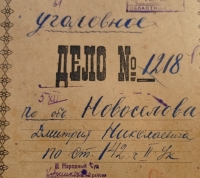 уголовное
ДЕЛО № 1218
по об. Новоселова
Дмитрия Николаевича
по ст. 142 ч II УК
Народный Суд